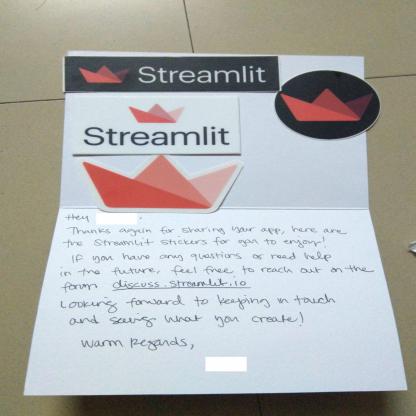 Streamlit
Streamlit
Hey
Thanks again for sharing your app, here are
the Streamlit stickers for you to enjoy!
If you have any questions or need help
in the future, feel free to reach out on the
forum discuss.streamlit.io
Looking forward to keeping in touch
and seeing what you create!
Warm Regards,